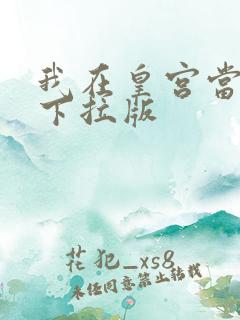 我在皇宫当
下拉版
花犯_xs8
未经同意禁止转载